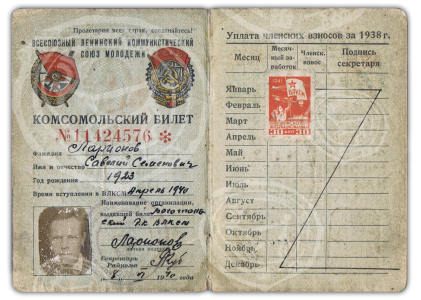 Пролетарии всех стран, соединяйтесь!
ВСЕСОЮЗНЫЙ ЛЕНИНСКИЙ КОММУНИСТИЧЕСКИЙ
СОЮЗ МОЛОДЕЖИ
КОМСОМОЛЬСКИЙ БИЛЕТ
№ 11424576
Фамилия Ларионов
Имя и отчество Савелий Семенович
Год рождения 1923
Время вступления в ВЛКСМ Апрель 1940
Наименование организации,
выдавшей билет
РК ВЛКСМ
Ларионов
Личная подпись
Секретарь
Райкома
1940 года
Уплата членских взносов за 1938 г.
Месяц Месяч-ный за-работок Членск. взнос Подпись секретаря
Январь
Февраль
Март
Апрель
Май
Июнь
Июль
Август
Сентябрь
Октябрь
Ноябрь
Декабрь